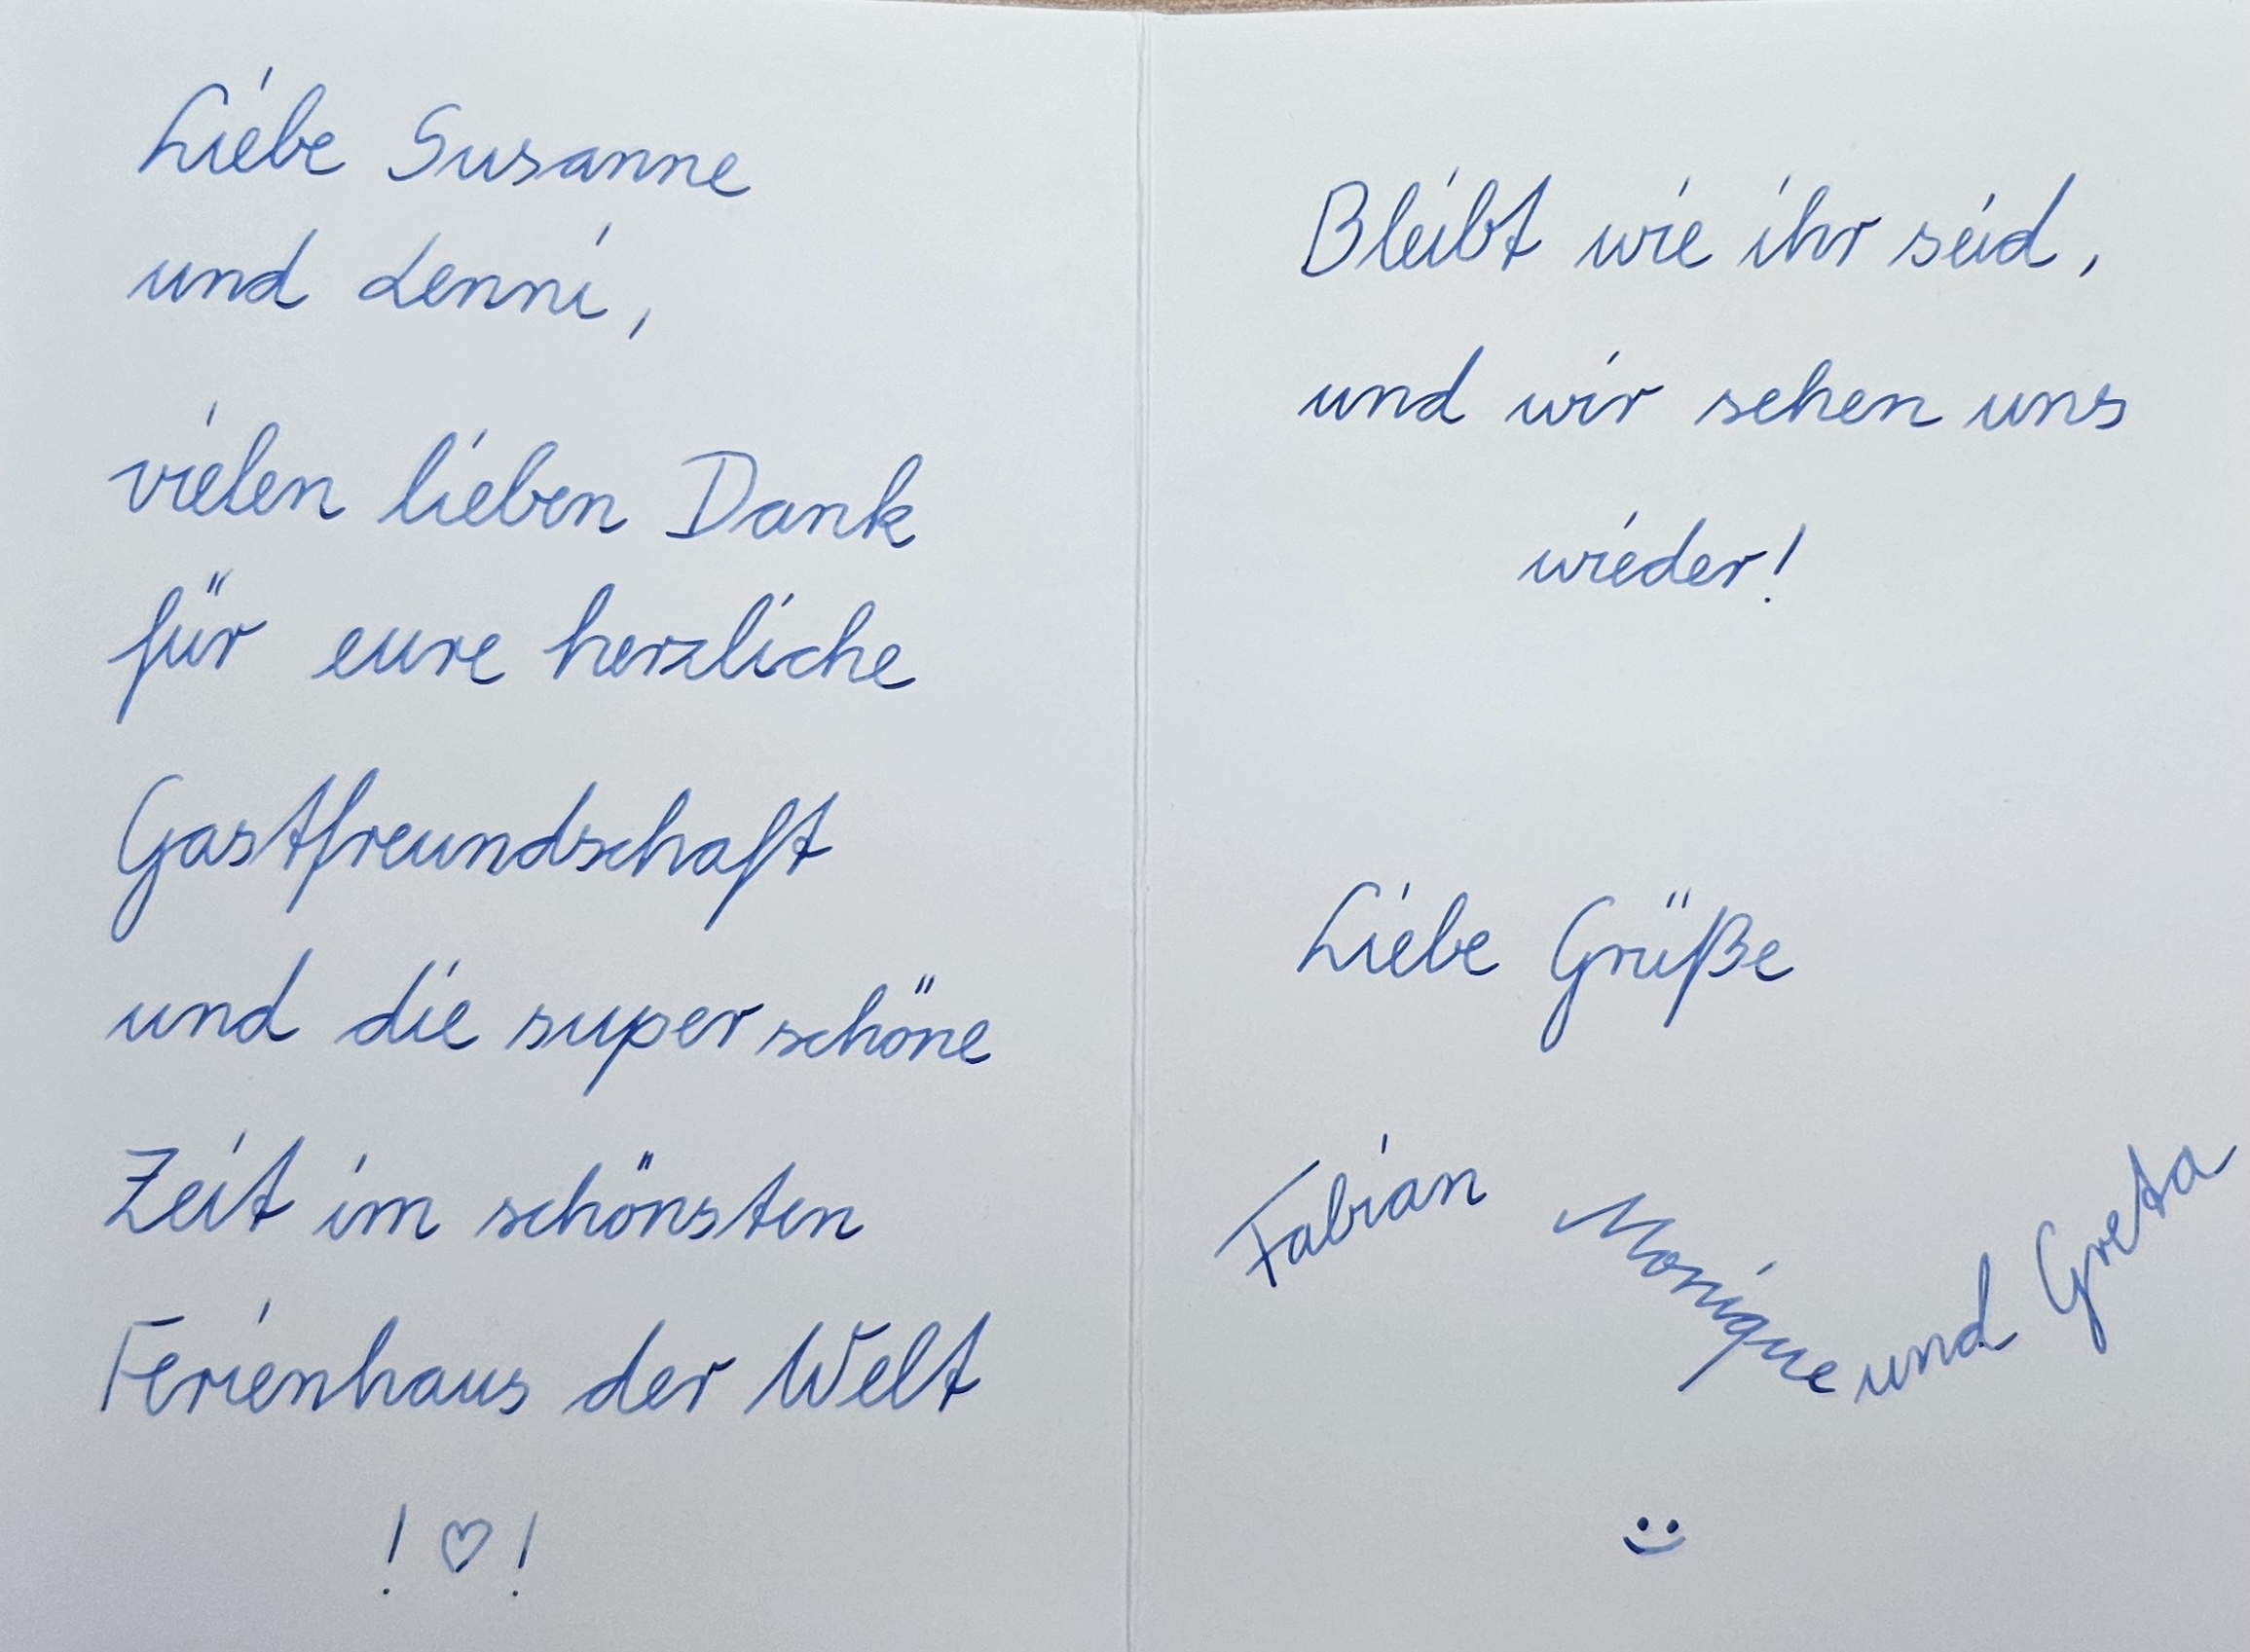 Liebe Susanne
und Lenni,
vielen lieben Dank
für eure herzliche
Gastfreundschaft
und die super schöne
Zeit im schönsten
Ferienhaus der Welt
! ♡ !
Bleibt wie ihr seid,
und wir sehen uns
wieder!
Liebe Grüße
Fabian Monique und Greta